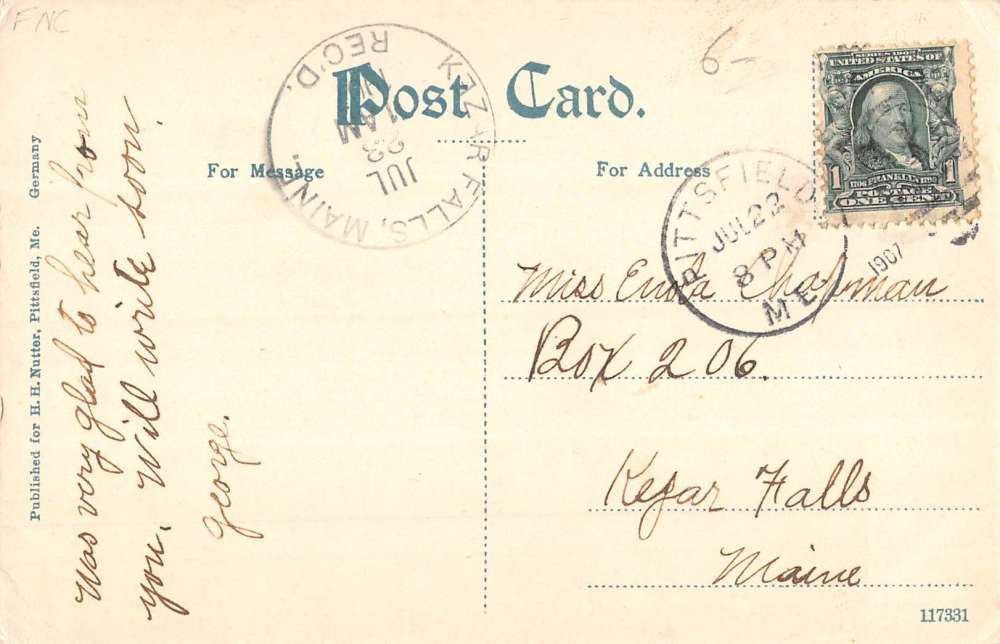 F NC
6-
Post Card.
For Message
For Address
KEZAR FALLS, MAINE.
REC'D.
1 AM
23
JUL
SERIES 1902
UNITED STATES OF
AMERICA
1 1
1706 FRANKLIN 1790
POSTAGE
ONE CENT
PITTSFIELD
JUL 22
8 PM
ME
1907
Miss Enola Chapman
Box 206.
Kezar Falls
Maine
Was very glad to hear from
you. Will write soon.
George.
Published for H. H. Nutter, Pittsfield, Me. Germany
117331